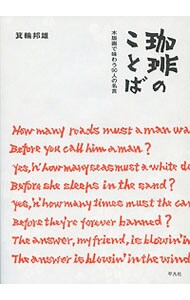 箕輪邦雄
珈琲の
ことば
木版画で味わう90人の名言
How many roads must a man wa
Before you call him a man?
Yes,'n' how many seas must a white do
Before she sleeps in the sand?
Yes,'n' how many times must the can
Before they're forever banned?
The answer, my friend, is blowin' in
The answer is blowin' in the wind
平凡社